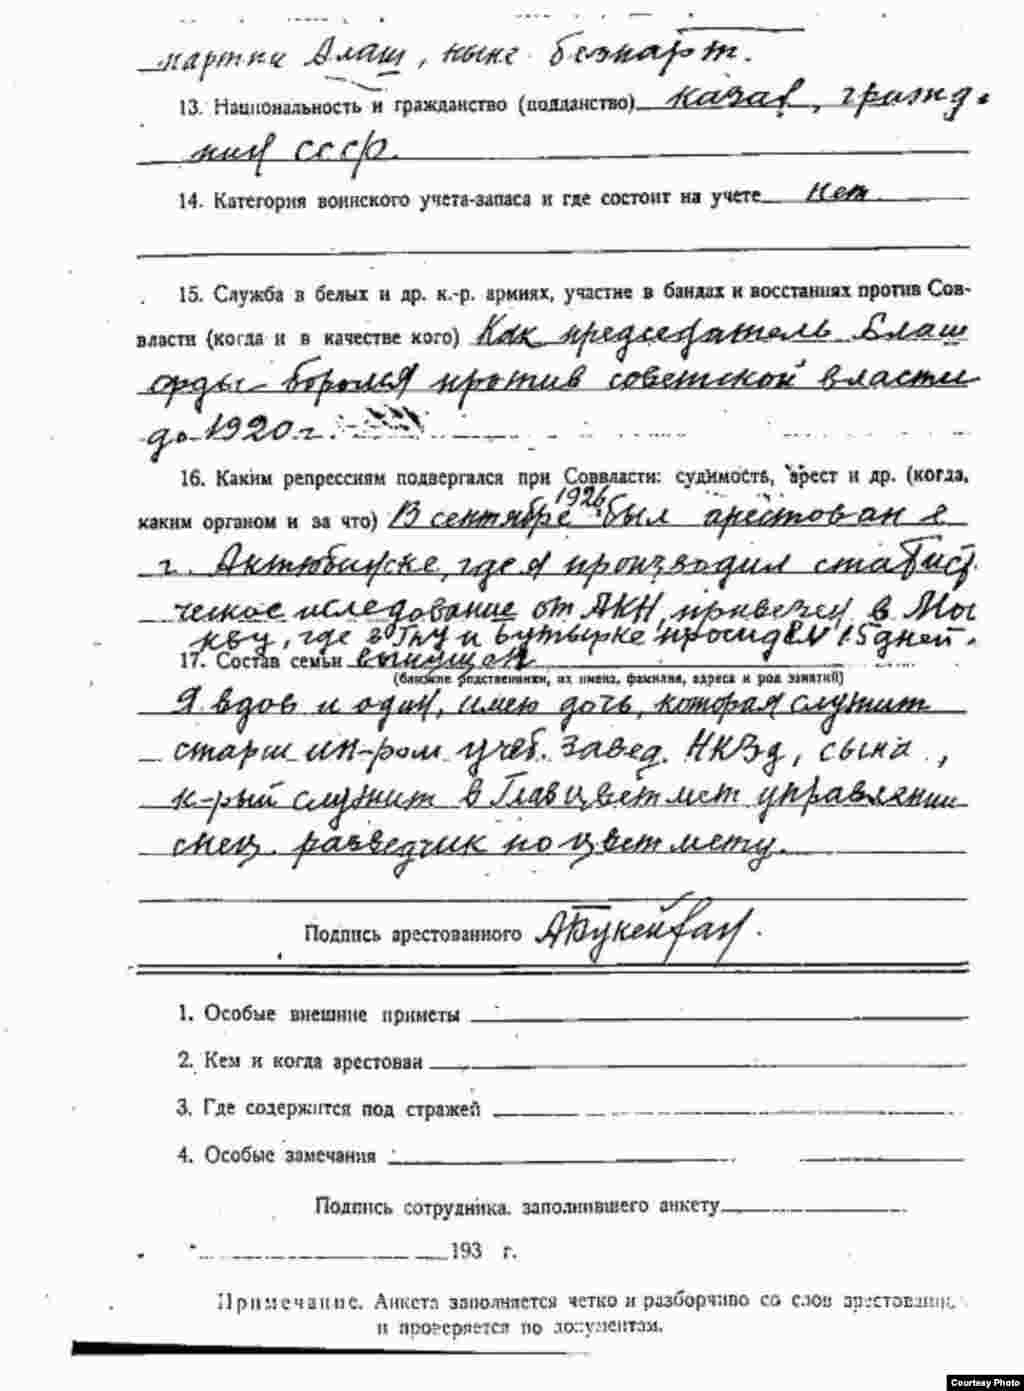 партии Алаш, ныне беспарт.
13. Национальность и гражданство (подданство) казак, гражд.
ния СССР.
14. Категория воинского учета-запаса и где состоит на учете нет
15. Служба в белых и др. к.-р. армиях, участие в бандах и восстаниях против Сов-
власти (когда и в качестве кого) Как председатель Алаш
орды боролся против советской власти
до 1920 г.
16. Каким репрессиям подвергался при Соввласти: судимость, арест и др. (когда,
1926
каким органом и за что) В сентябре был арестован в
г. Актюбинске, где я производил статист
ческое иследование от АКН, привезен в Мос
кву, где в ГПУ и Бутырке просидел 15 дней.
17. Состав семьи выпущен
(ближние родственники, их имена, фамилия, адреса и род занятий)
Я вдов и один, имею дочь, которая служит
старш ин-ром учеб. завед. НКЗд, сына,
к-рый служит в Главцветмет управлении
спец. разведчик по цветмету.
Подпись арестованного АБукейхан.
1. Особые внешние приметы
2. Кем и когда арестован
3. Где содержится под стражей
4. Особые замечания
Подпись сотрудника, заполнившего анкету
193 г.
Примечание. Анкета заполняется четко и разборчиво со слов
и проверяется по документам.
Courtesy Photo